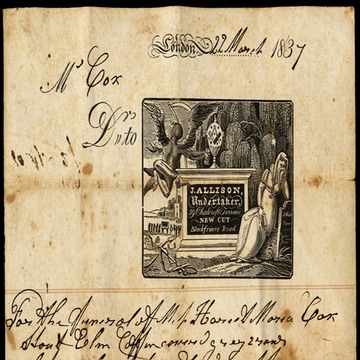 London, 22 March 1837
Mr Cox
Dr to
J. ALLISON,
Undertaker,
NEW CUT
Blackfriars Road
For the Funeral of Mrs Harriet Maria Cox
Stout Elm Coffin covered